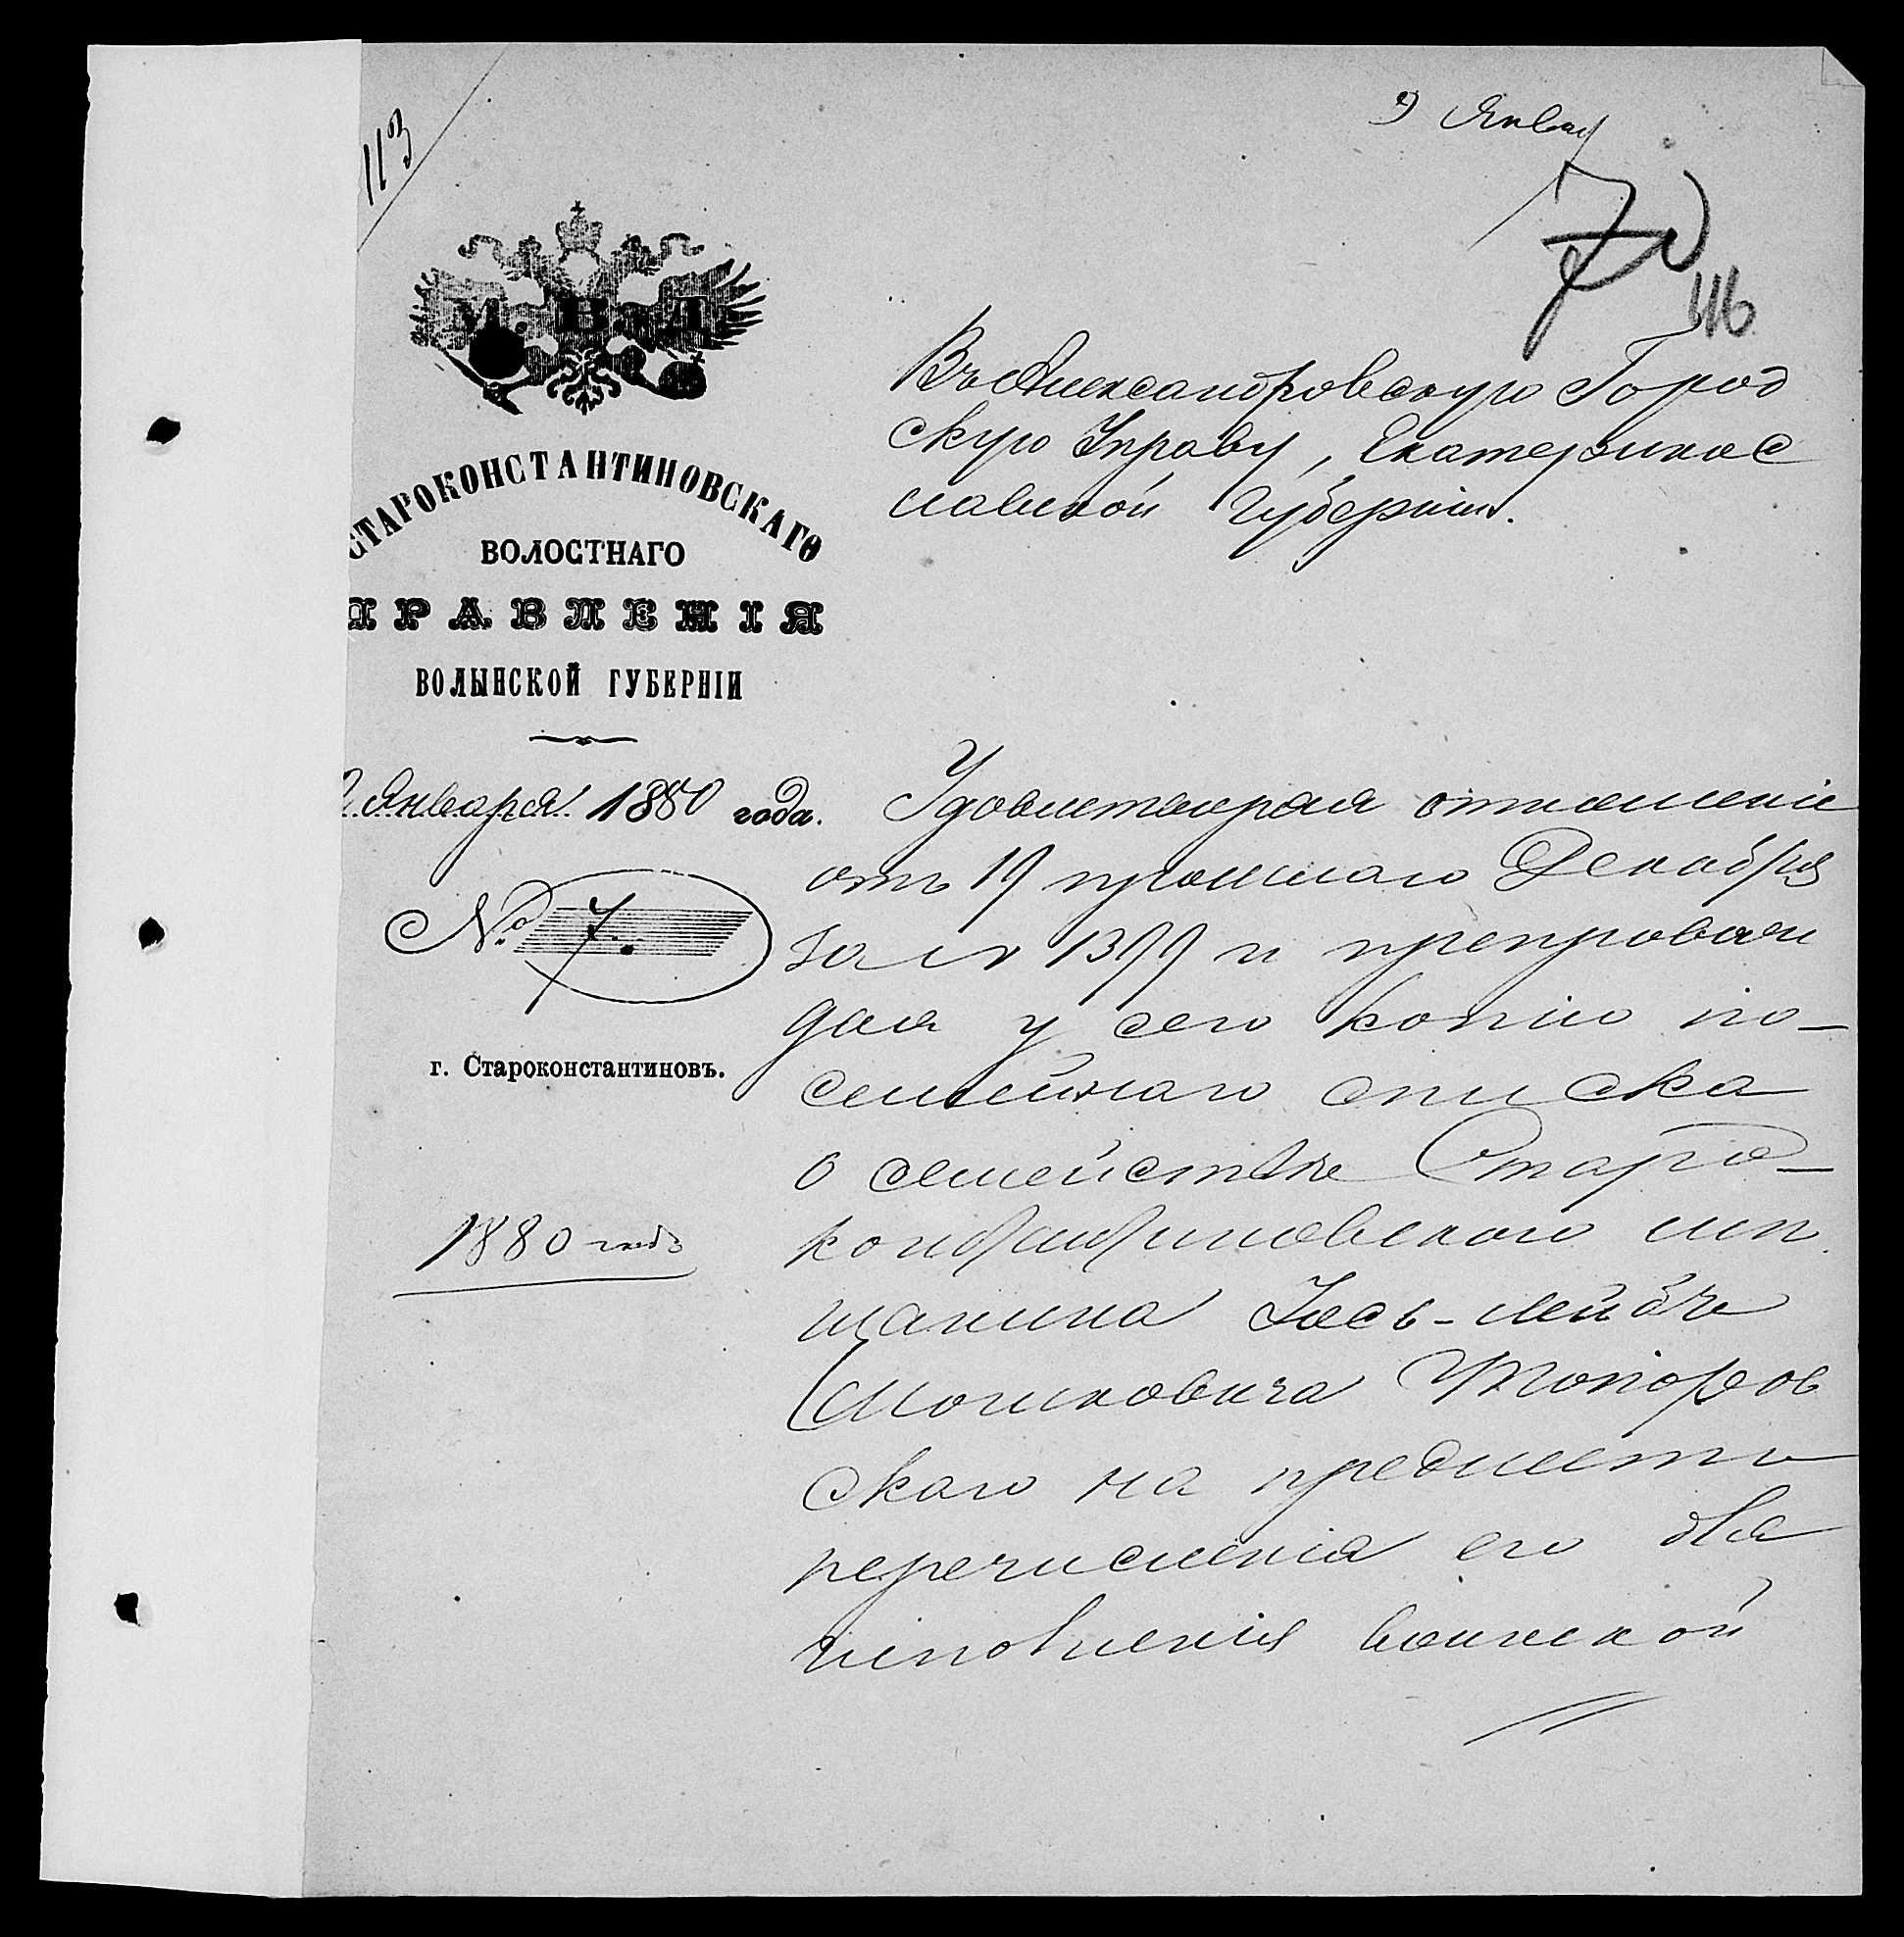 113
9 Январ
70
116
М. В. Д.
СТАРОКОНСТАНТИНОВСКАГО
ВОЛОСТНАГО
ПРАВЛЕНІЯ
ВОЛЫНСКОЙ ГУБЕРНІИ
2 Января 1880 года.
№ 7.
г. Староконстантиновъ.
1880 годъ
Въ Александровскую Город
скую Управу, Екатеринос
лавской Губерніи.
Удовлетворяя отношеніе
отъ 19 прошлаго Декабря
за № 1399 и препровож
дая у сего копію по-
семейнаго списка
о семействѣ Старо-
константиновскаго мѣ
щанина Іось-Лейбы
Мошковича Топоров
скаго на предметъ
перечисленія его для
исполненія воинской